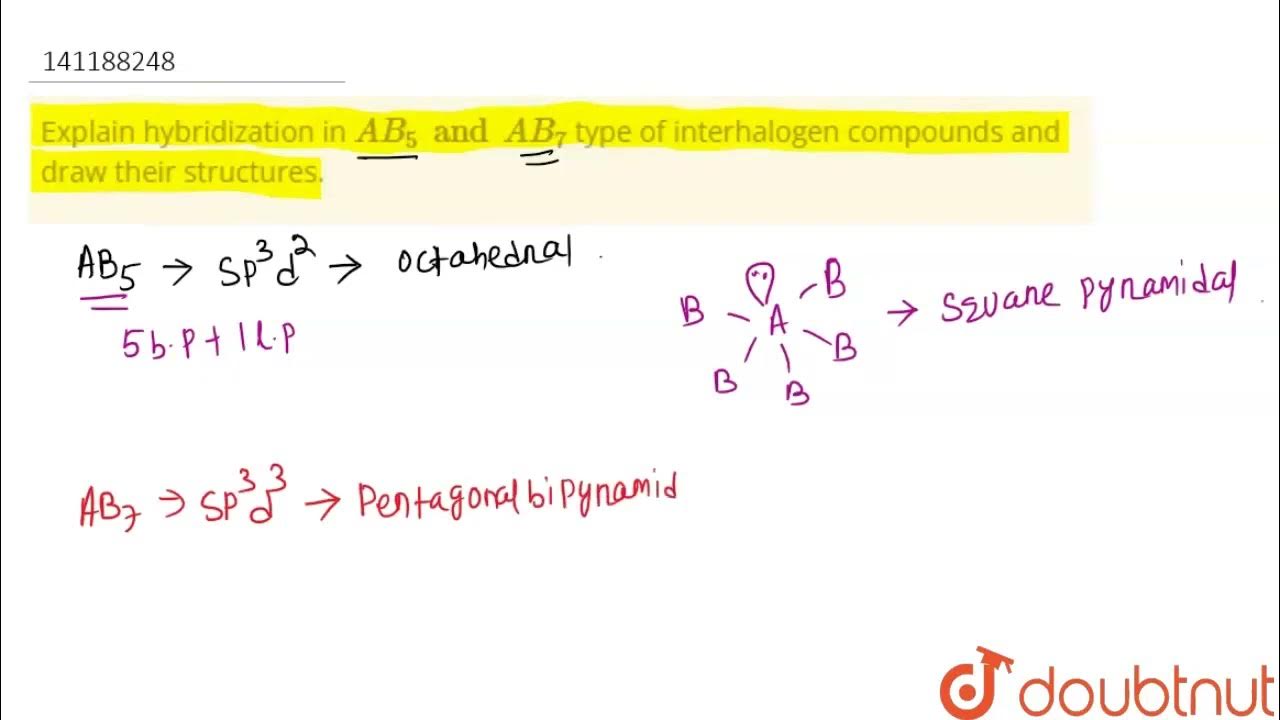 141188248
Explain hybridization in AB₅ and AB₇ type of interhalogen compounds and
draw their structures.
AB₅ → SP³d² → octahedral
5 b.P + 1 l.P
B A B B B B → Square Pyramidal
AB₇ → SP³d³ → Pentagonal bipyramid
doubtnut